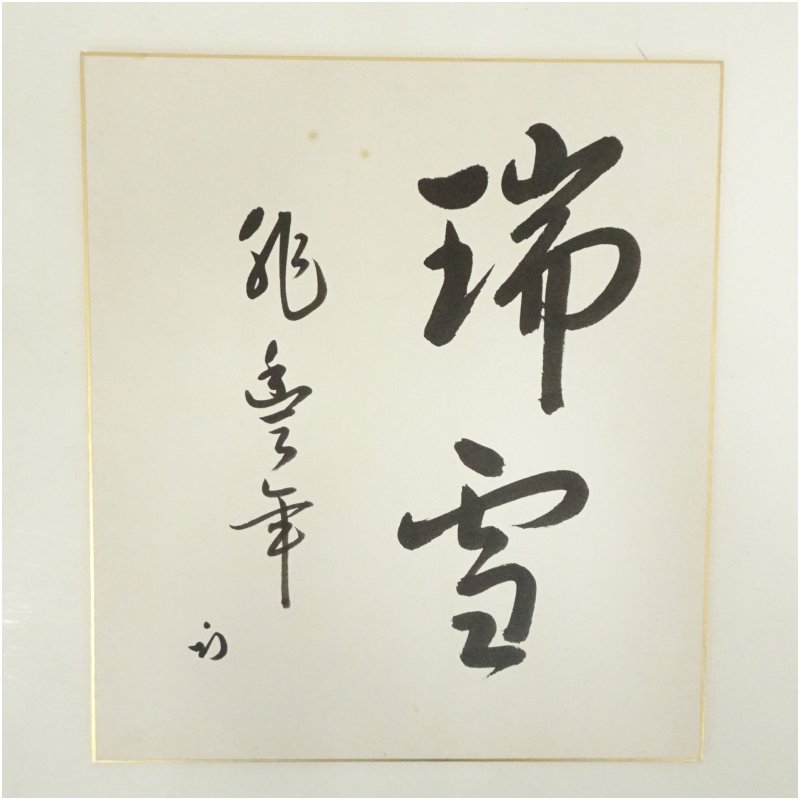 瑞雪
兆豊年